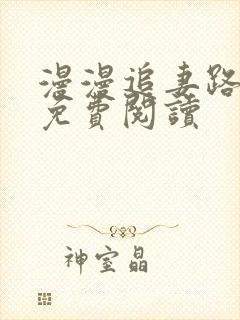 漫漫追妻路
免費閱讀
神室晶